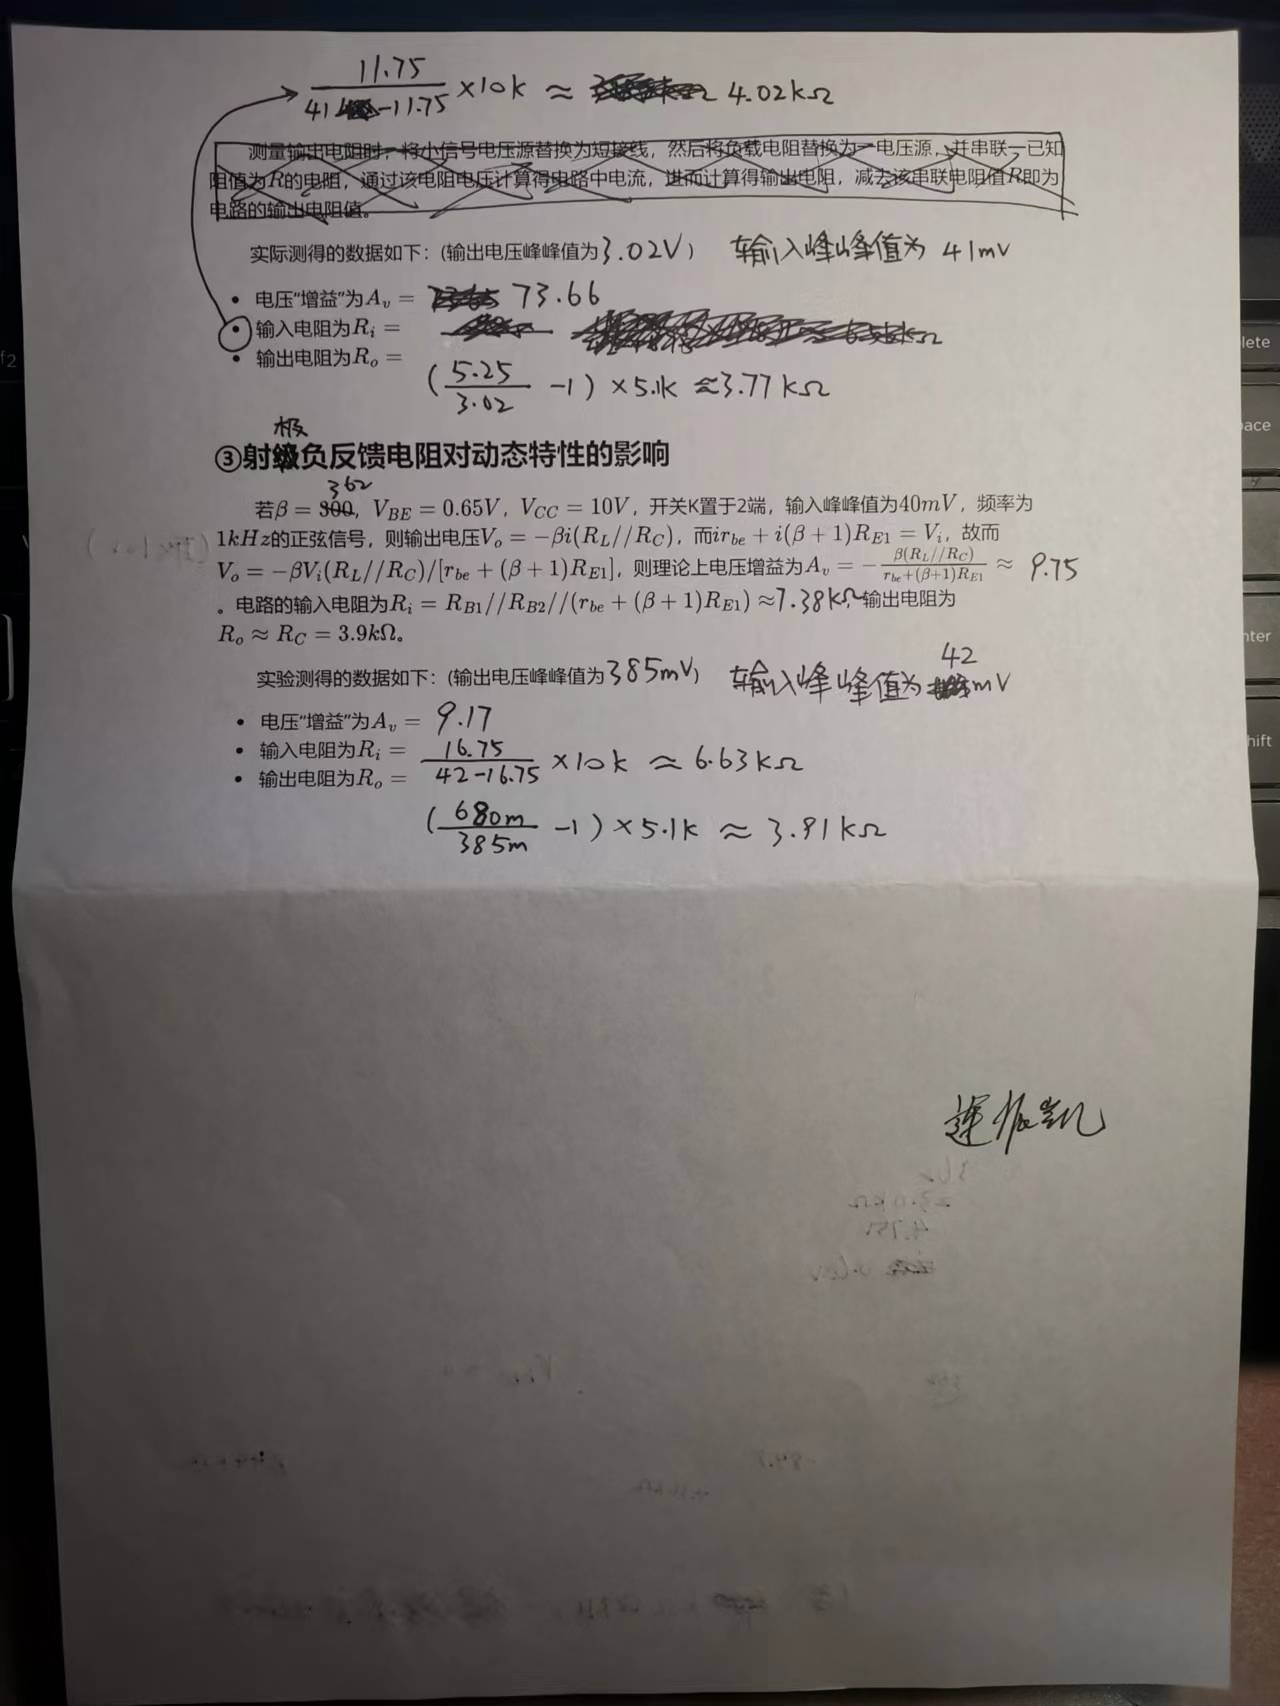 11.75
41 -11.75 ×10k ≈ 4.02kΩ
测量输出电阻时，将小信号电压源替换为短接线，然后将负载电阻替换为一电压源，并串联一已知
阻值为R的电阻，通过该电阻电压计算得电路中电流，进而计算得输出电阻，减去该串联电阻值R即为
电路的输出电阻值。
实际测得的数据如下：(输出电压峰峰值为3.02V) 输入峰峰值为 41mV
• 电压“增益”为A_v = 73.66
• 输入电阻为R_i =
• 输出电阻为R_o =
(5.25/3.02 -1) ×5.1k ≈3.77kΩ
极
③射级负反馈电阻对动态特性的影响
362
若β = 300, V_BE = 0.65V, V_CC = 10V, 开关K置于2端，输入峰峰值为40mV，频率为
1kHz的正弦信号，则输出电压V_o = −βi(R_L//R_C)，而ir_be + i(β + 1)R_E1 = V_i，故而
V_o = −βV_i(R_L//R_C)/[r_be + (β + 1)R_E1]，则理论上电压增益为A_v = −β(R_L//R_C)/r_be+(β+1)R_E1 ≈ 9.75
。电路的输入电阻为R_i = R_B1//R_B2//(r_be + (β + 1)R_E1) ≈7.38kΩ, 输出电阻为
R_o ≈ R_C = 3.9kΩ。
42
实验测得的数据如下：(输出电压峰峰值为385mV) 输入峰峰值为 mV
• 电压“增益”为A_v = 9.17
• 输入电阻为R_i = 16.75/42-16.75 ×10k ≈ 6.63kΩ
• 输出电阻为R_o =
(680m/385m -1) ×5.1k ≈ 3.91kΩ